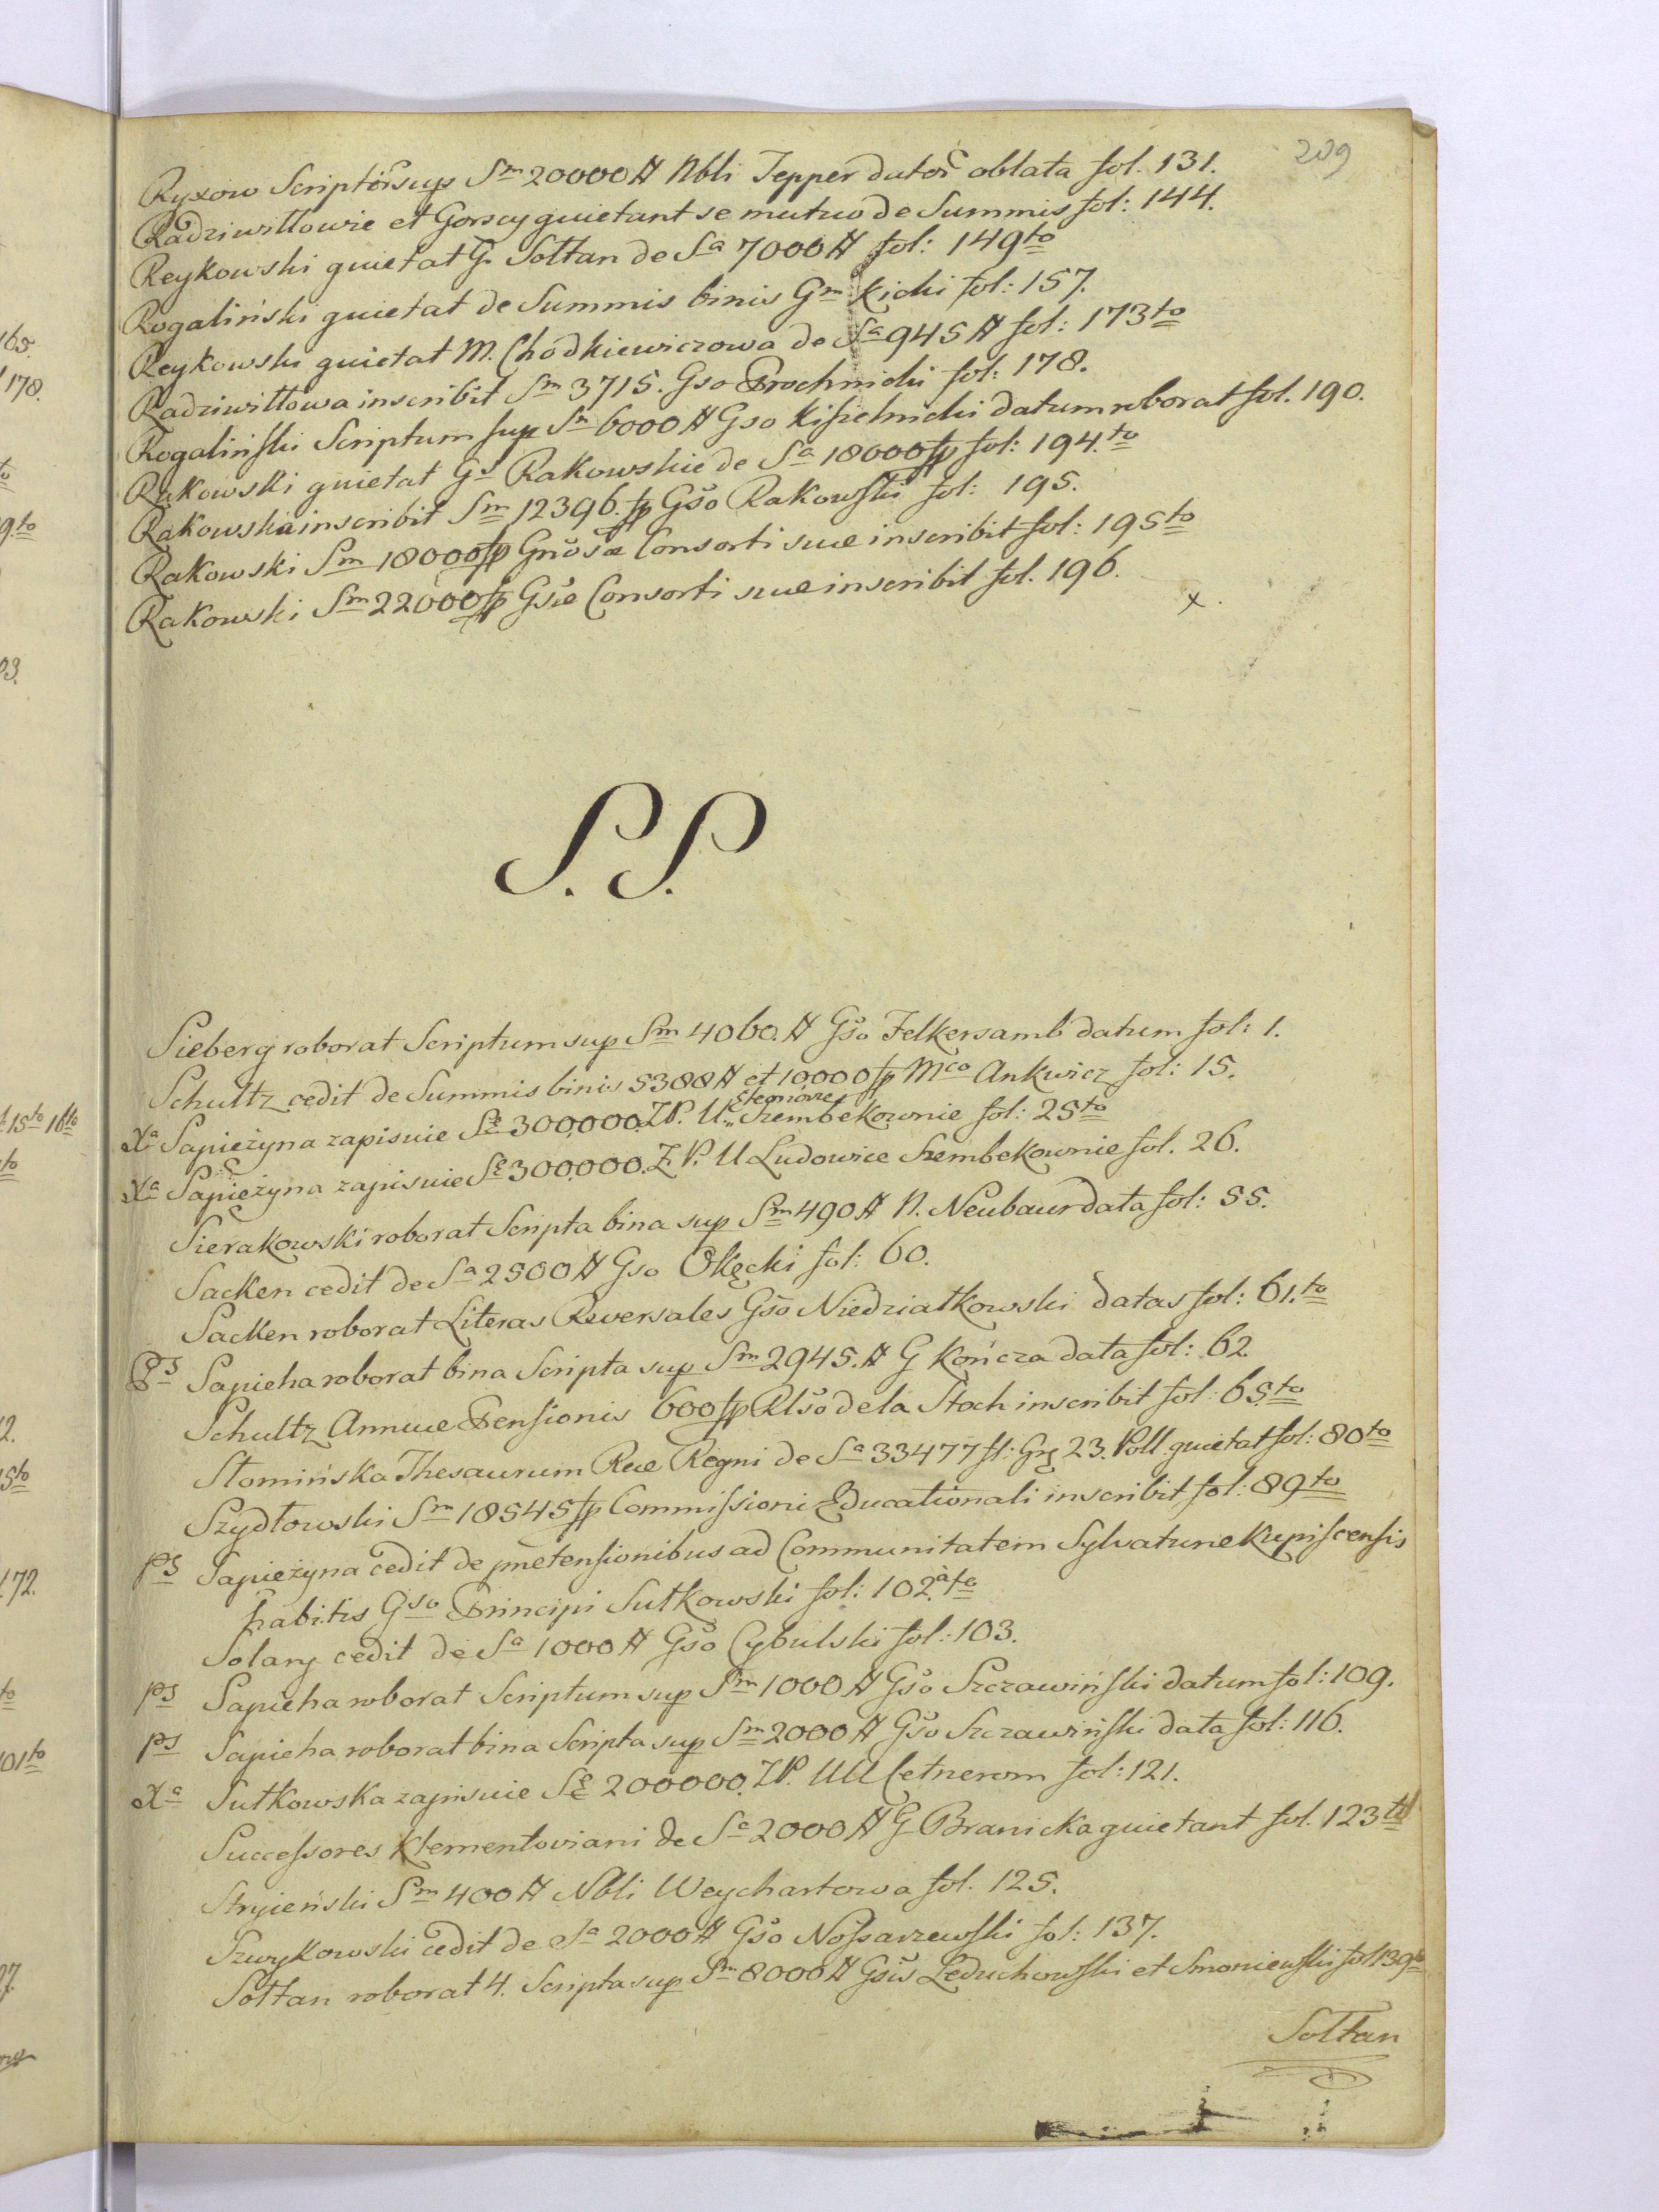 209
Ryxow Scriptor sup Sm 20000 # Nbli Tepper dator oblata fol. 131.
Radziwiłłowie et Gorscy quietant se mutuo de Summis fol: 144.
Reykowski quietat G. Sołtan de Sa 7000 # fol: 149to
Rogaliński quietat de Summis binis Gm Kicki fol: 157.
Reykowski quietat M. Chodkiewiczowa de Sa 945 # fol: 173to
Radziwiłłowa inscribit Sm 3715. Gso Prochnicki fol: 178.
Rogaliński Scriptum sup Sm 6000 # Gso Kisielnicki datum roborat fol. 190.
Rakowski quietat Gs Rakowskie de Sa 18000 fp fol: 194.to
Rakowska inscribit Sm 12396. fp Gso Rakowski fol: 195.
Rakowski Sm 18000 fp Gnosæ Consorti suæ inscribit fol: 195to
Rakowski Sm 22000 fp Gsæ Consorti suæ inscribit fol. 196.
x.
S. S.
Sieberg roborat Scriptum sup Sm 4060. # Gso Felkersamb datum fol: 1.
Schultz cedit de Summis binis 5388 # et 10000 fp Mco Ankwicz fol: 15.
Xa Sapieżyna zapisuie Sę 300,000. ZP. U. Eleonorze Szembekownie fol: 25to
Xa Sapieżyna zapisuie Sę 300,000. Z.P. U Ludowice Szembekownie fol. 26.
Sierakowski roborat Scripta bina sup Sm 490 # N. Neubaur data fol: 55.
Sacken cedit de Sa 2500 # Gso Okęcki fol: 60.
Sacken roborat Literas Reversales Gso Niedziałkowski datas fol: 61.to
Ps Sapieha roborat bina Scripta sup Sm 2945. # G Kończa data fol: 62.
Schultz Annuæ Pensionis 600 fp Rlso de la Stoch inscribit fol: 65to
Słomińska Thesaurum Ræ Regni de Sa 33477 fl: Grz 23. Poll. quietat fol: 80to
Szydłowski Sm 18545 fp Commissioni Educationali inscribit fol: 89to
Ps Sapieżyna cedit de prætensionibus ad Communitatem Sylvaturæ Kupiscensis
habitis Gso Principi Sułkowski fol: 102.to
Solary cedit de Sa 1000 # Gso Cybulski fol: 103.
Ps Sapieha roborat Scriptum sup Sm 1000 # Gso Szczawiński datum fol: 109.
Ps Sapieha roborat bina Scripta sup Sm 2000 # Gso Szczawiński data fol: 116.
Xa Sułkowska zapisuie Sę 200000. ZP. UU Cetnerom fol: 121.
Successores Klementoviani de Sa 2000 # G Branicka quietant fol. 123to
Stryieński Sm 400 # Nbli Weychartowa fol. 125.
Szwykowski cedit de Sa 2000 # Gso Nossarzewski fol: 137.
Sołtan roborat 4. Scripta sup Sm 8000 # Gsis Leduchowski et Smoniewski fol 139to
Sołtan